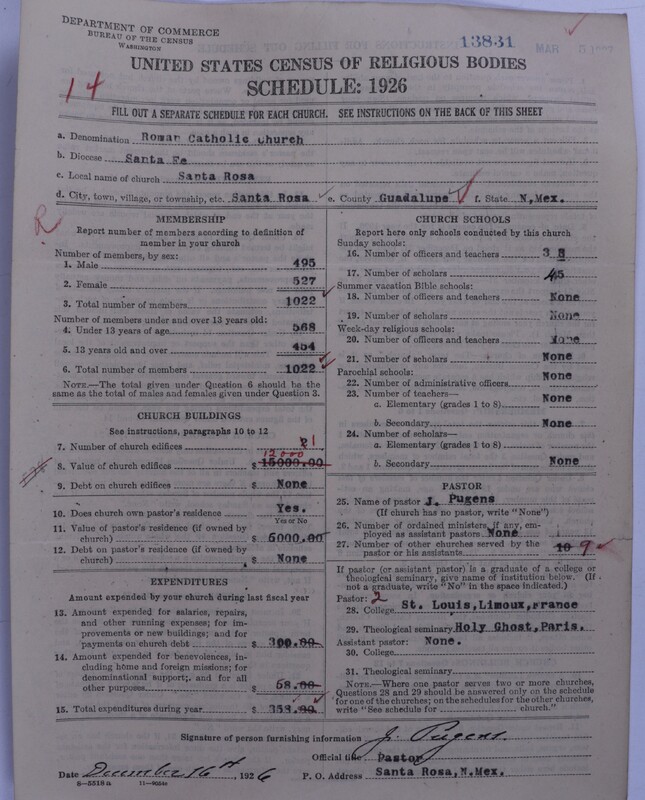 DEPARTMENT OF COMMERCE
BUREAU OF THE CENSUS
WASHINGTON
13831
MAR
UNITED STATES CENSUS OF RELIGIOUS BODIES
SCHEDULE: 1926
14
FILL OUT A SEPARATE SCHEDULE FOR EACH CHURCH. SEE INSTRUCTIONS ON THE BACK OF THIS SHEET
a. Denomination Roman Catholic Church
b. Diocese Santa Fe
c. Local name of church Santa Rosa
d. City, town, village, or township, etc. Santa Rosa e. County Guadalupe f. State N,Mex.
R
MEMBERSHIP
Report number of members according to definition of
member in your church
Number of members, by sex:
1. Male 495
2. Female 527
3. Total number of members 1022
Number of members under and over 13 years old:
4. Under 13 years of age 568
5. 13 years old and over 454
6. Total number of members 1022
NOTE.—The total given under Question 6 should be the
same as the total of males and females given under Question 3.
CHURCH BUILDINGS
See instructions, paragraphs 10 to 12
7. Number of church edifices 1
12000
8. Value of church edifices $ 15000.00
9. Debt on church edifices $ None
10. Does church own pastor's residence? Yes.
Yes or No
11. Value of pastor's residence (if owned by
church) $ 5000.00
12. Debt on pastor's residence (if owned by
church) $ None
EXPENDITURES
Amount expended by your church during last fiscal year
13. Amount expended for salaries, repairs,
and other running expenses; for im-
provements or new buildings; and for
payments on church debt $ 300.00
14. Amount expended for benevolences, in-
cluding home and foreign missions; for
denominational support; and for all
other purposes $ 58.00
15. Total expenditures during year $ 358.00
CHURCH SCHOOLS
Report here only schools conducted by this church
Sunday schools:
16. Number of officers and teachers 3
17. Number of scholars 45
Summer vacation Bible schools:
18. Number of officers and teachers None
19. Number of scholars None
Week-day religious schools:
20. Number of officers and teachers None
21. Number of scholars None
Parochial schools:
22. Number of administrative officers
23. Number of teachers— None
a. Elementary (grades 1 to 8)
b. Secondary None
24. Number of scholars—
a. Elementary (grades 1 to 8)
b. Secondary None
PASTOR
25. Name of pastor J. Pugens
(If church has no pastor, write "None")
26. Number of ordained ministers, if any, em-
ployed as assistant pastors None
27. Number of other churches served by the
pastor or his assistants 10 9
If pastor (or assistant pastor) is a graduate of a college or
theological seminary, give name of institution below. (If
not a graduate, write "No" in the space indicated.)
Pastor: 2
28. College St. Louis,Limoux,France
29. Theological seminary Holy Ghost,Paris.
Assistant pastor: None.
30. College
31. Theological seminary
NOTE.—Where one pastor serves two or more churches,
Questions 28 and 29 should be answered only on the schedule
for one of the churches; on the schedules for the other churches,
write "See schedule for church."
Signature of person furnishing information J. Pugens.
Official title Pastor
Date December 16th, 1926 P. O. Address Santa Rosa,N.Mex.